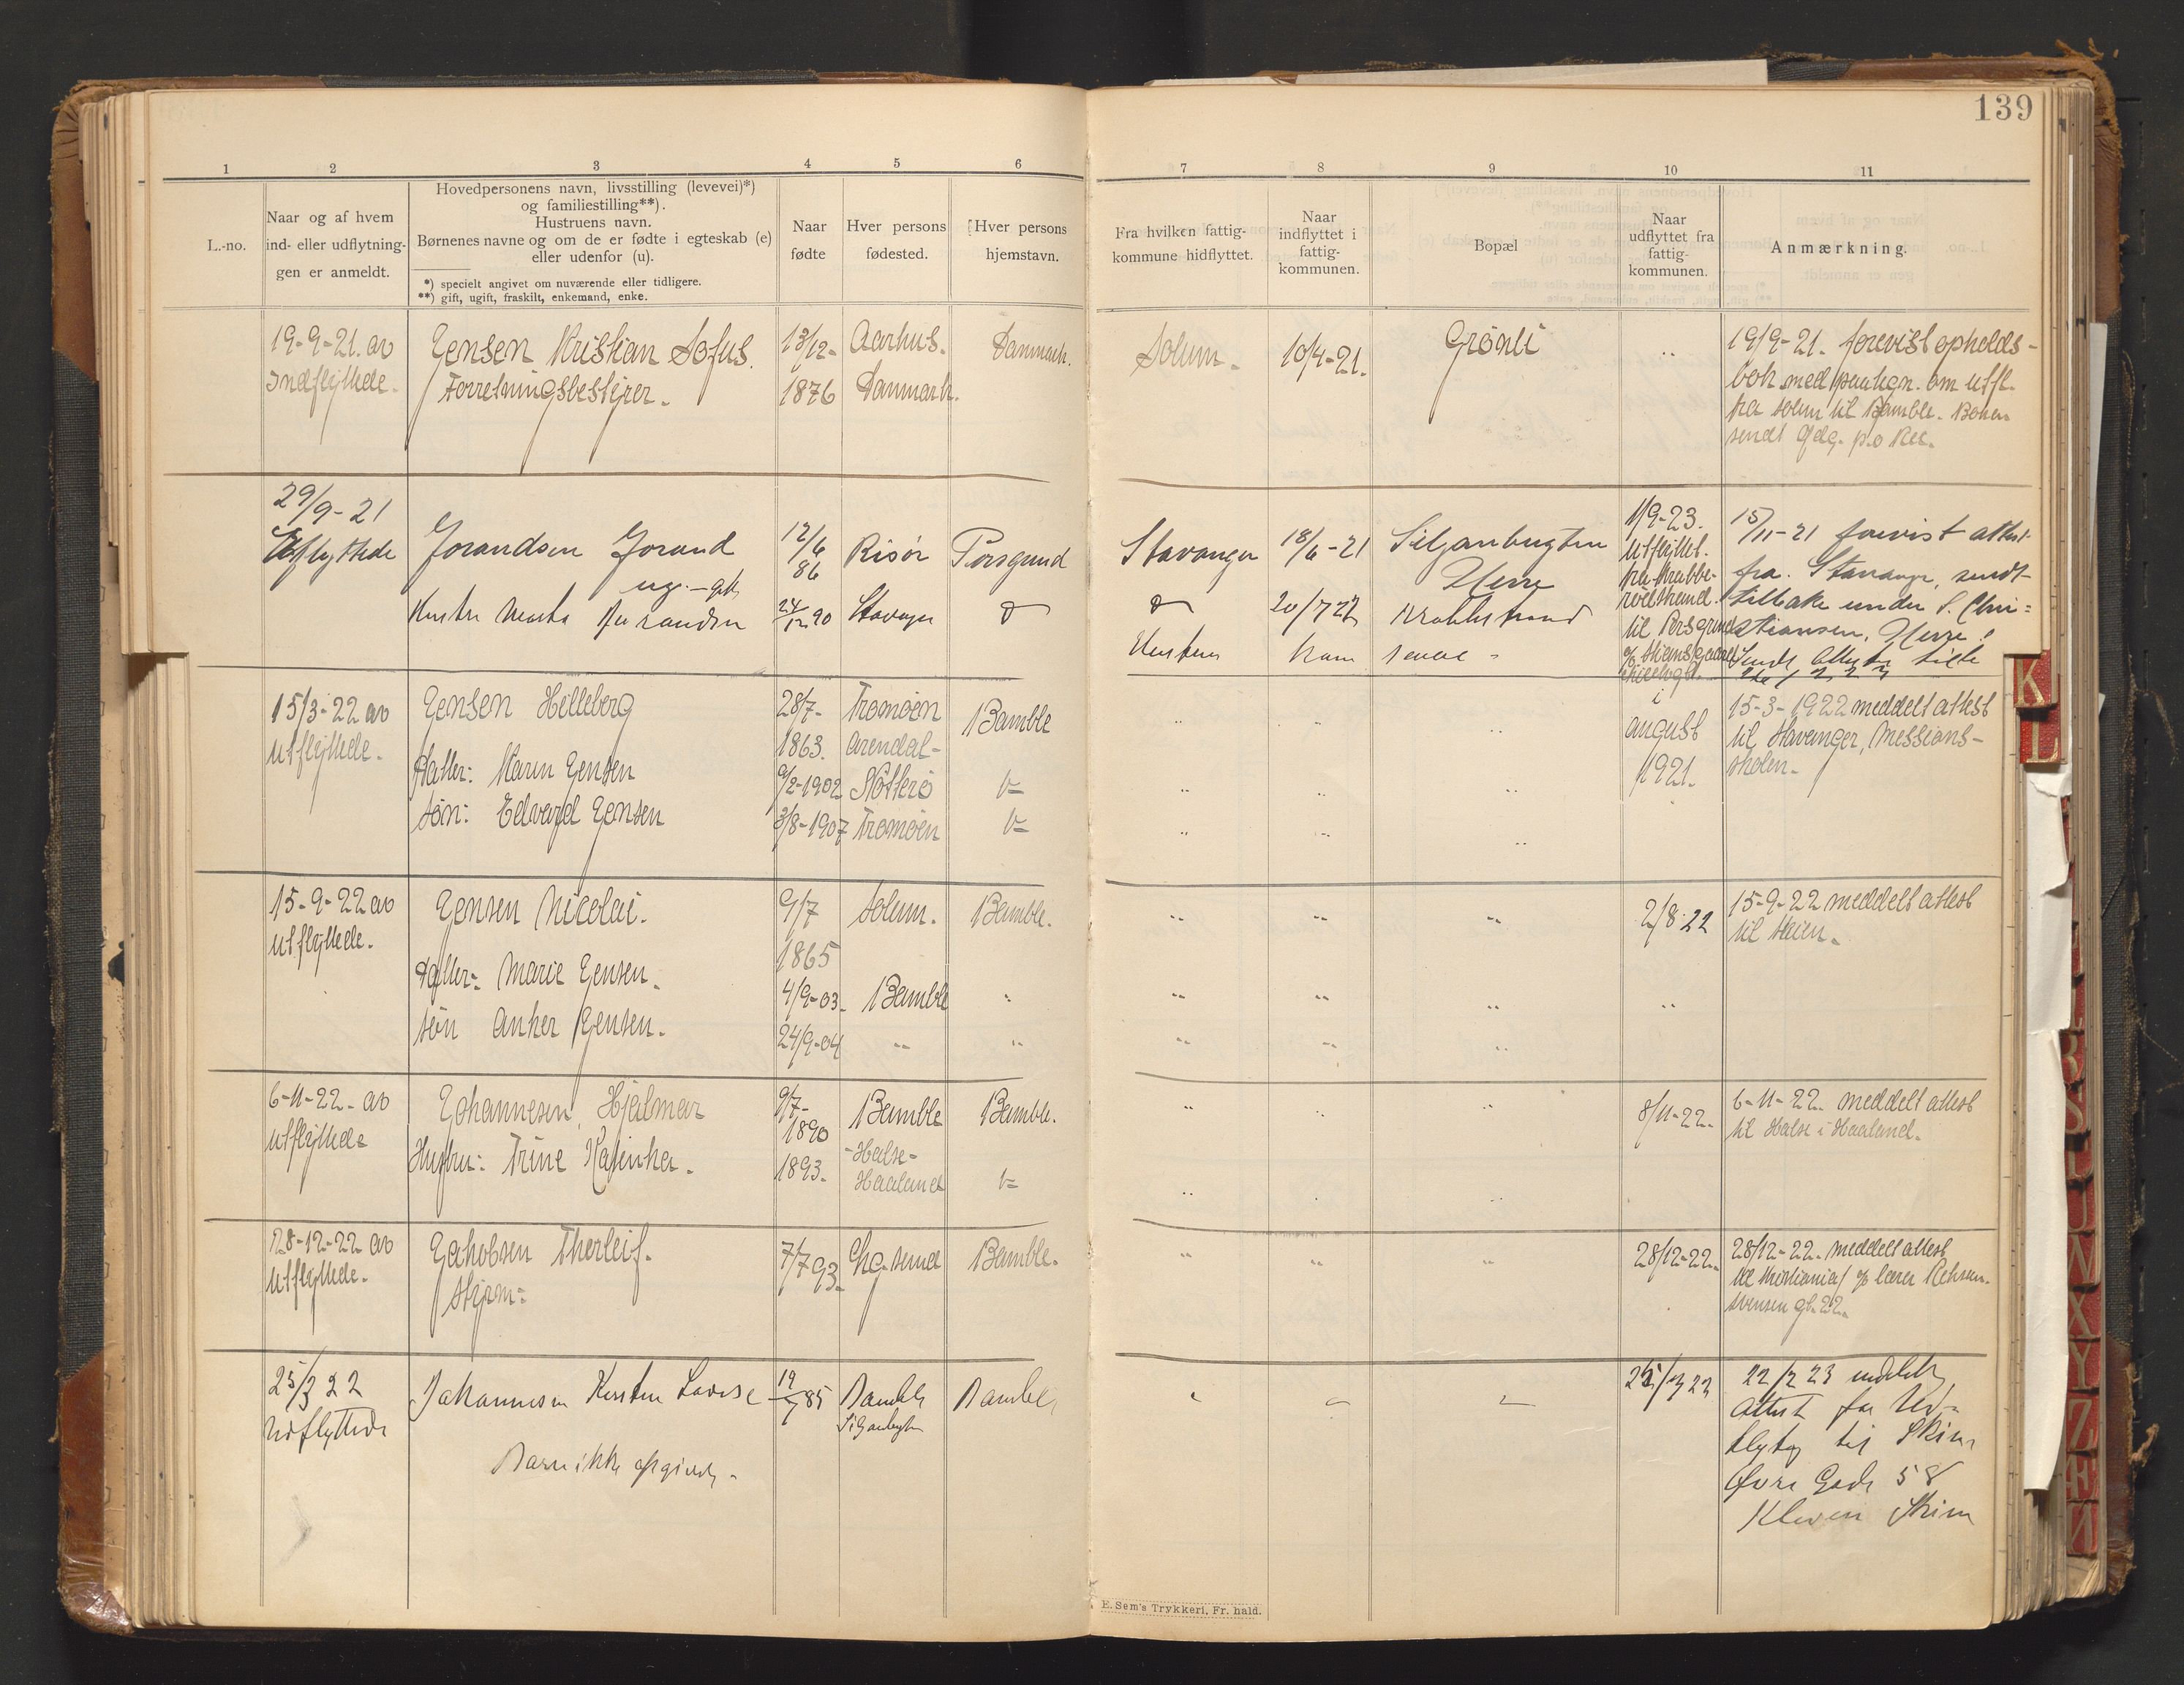 139
1 2 3 4 5 6 7 8 9 10 11
L.-no.
Naar og af hvem
ind- eller udflytnin-
gen er anmeldt.
Hovedpersonens navn, livsstilling (levevei)*)
og familiestilling**).
Hustruens navn.
Børnenes navne og om de er fødte i egteskab (e)
eller udenfor (u).
*) specielt angivet om nuværende eller tidligere.
**) gift, ugift, fraskilt, enkemand, enke.
Naar
fødte
Hver persons
fødested.
Hver persons
hjemstavn.
Fra hvilken fattig-
kommune hidflyttet.
Naar
indflyttet i
fattig-
kommunen.
Bopæl
Naar
udflyttet fra
fattig-
kommunen.
Anmærkning.
19-9-21. av
Indflyttede.
Jensen Kristian Sofus.
Forretningsbestyrer.
13/12-
1876
Aarhus.
Danmark.
Danmark.
Solum.
10/4-21.
Grönli
19/9-21. forevist opholds-
bok med paategn. om utfl.
fra Solum til Bamble. Boken
sendt
29/9-21
Jorandsen Jorand
12/6
86
Risör
Porsgrund
Stavanger
18/6-21
Siljanbugten
Herre
1/9-23.
Utflyttet
fra Krabbe-
rödstrand
til Porsgrund
15/11-21 forevist attest
fra Stavanger, sendt
tilbake under S. Chri-
stiansen, Herre.
24/12 90
Stavanger
20/7 22
15/3-22 av
utflyttede.
Jensen Hilleborg
28/7-
1863.
Tromöen
Arendal-
Bamble
i
august
1921.
15-3-1922 meddelt attest
til Stavanger, Messions-
skolen.
Datter: Karen Jensen
9/2-1902
Nötterö
Sön: Edvard Jensen
3/8-1907
Tromöen
15-9-22 av
utflyttede.
Jensen Nicolai.
9/7
1865
Solum.
Bamble.
2/8-22
15-9-22 meddelt attest
til Skien.
Datter: Marie Jensen.
4/9-03.
Bamble
Sön Anker Jensen.
24/9-04
6-11-22. av
utflyttede
Johannesen, Hjalmar
9/7-
1890
Bamble
Bamble.
8/11-22.
6-11-22. meddelt attest
til Halse i Haaland.
Hustru: Trine Katinka.
1893.
-Halse-
Haaland
28-12-22 av
utflyttede.
Jakobsen Thorleif.
Styrm:
7/7 93.
Bamble.
28/12-22.
28/12-22. meddelt attest
til Kristiania
25/3 22
Udflyttede
Johannesen Kirsten Lovise
19/7 85
Bamble
Bamble
Barn ikke opgivet.
25/3 22
22/2 23 meddelt
Attest for Ud-
flytg til Skien
Övre Gade 58
Kleven Skien
K
L
E. Sem's Trykkeri, Fr. hald.